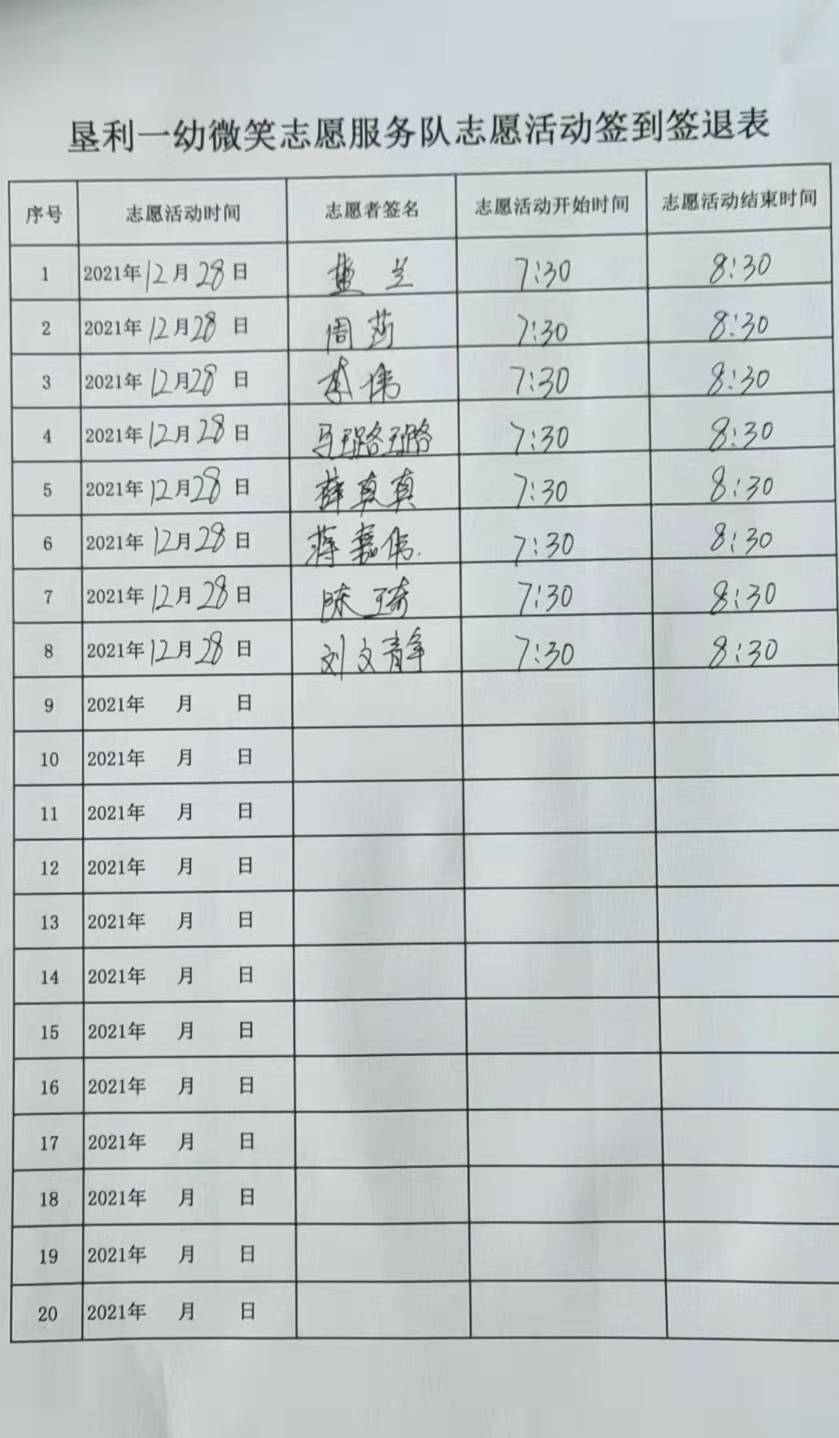 垦利一幼微笑志愿服务队志愿活动签到签退表
序号 志愿活动时间 志愿者签名 志愿活动开始时间 志愿活动结束时间
1 2021年12月28日 兰 7:30 8:30
2 2021年12月28日 周莉 7:30 8:30
3 2021年12月28日 李伟 7:30 8:30
4 2021年12月28日 马璐璐 7:30 8:30
5 2021年12月28日 薛真真 7:30 8:30
6 2021年12月28日 蒋嘉伟 7:30 8:30
7 2021年12月28日 陈琦 7:30 8:30
8 2021年12月28日 刘文静 7:30 8:30
9 2021年 月 日
10 2021年 月 日
11 2021年 月 日
12 2021年 月 日
13 2021年 月 日
14 2021年 月 日
15 2021年 月 日
16 2021年 月 日
17 2021年 月 日
18 2021年 月 日
19 2021年 月 日
20 2021年 月 日